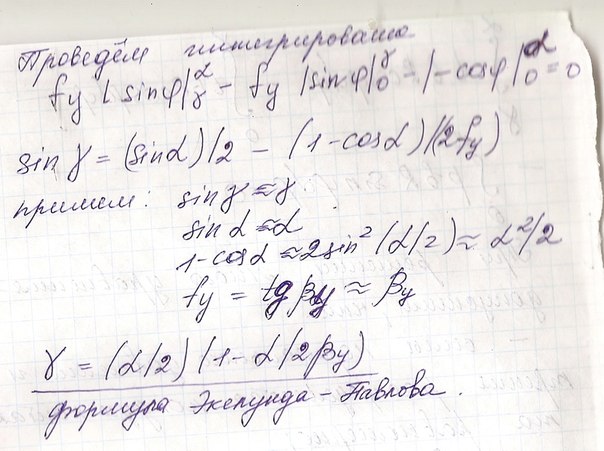 Проведём интегрирование
fy |sinφ|_γ^α - fy |sinφ|_0^γ - |-cosφ|_0^α = 0
sin γ = (sinα)/2 - (1-cosα)/(2fy)
примем: sin γ ≈ γ
sin α ≈ α
1-cosα ≈ 2sin²(α/2) ≈ α²/2
fy = tg βy ≈ βy
γ = (α/2) (1-α/2βy)
формула Экелунда - Павлова.